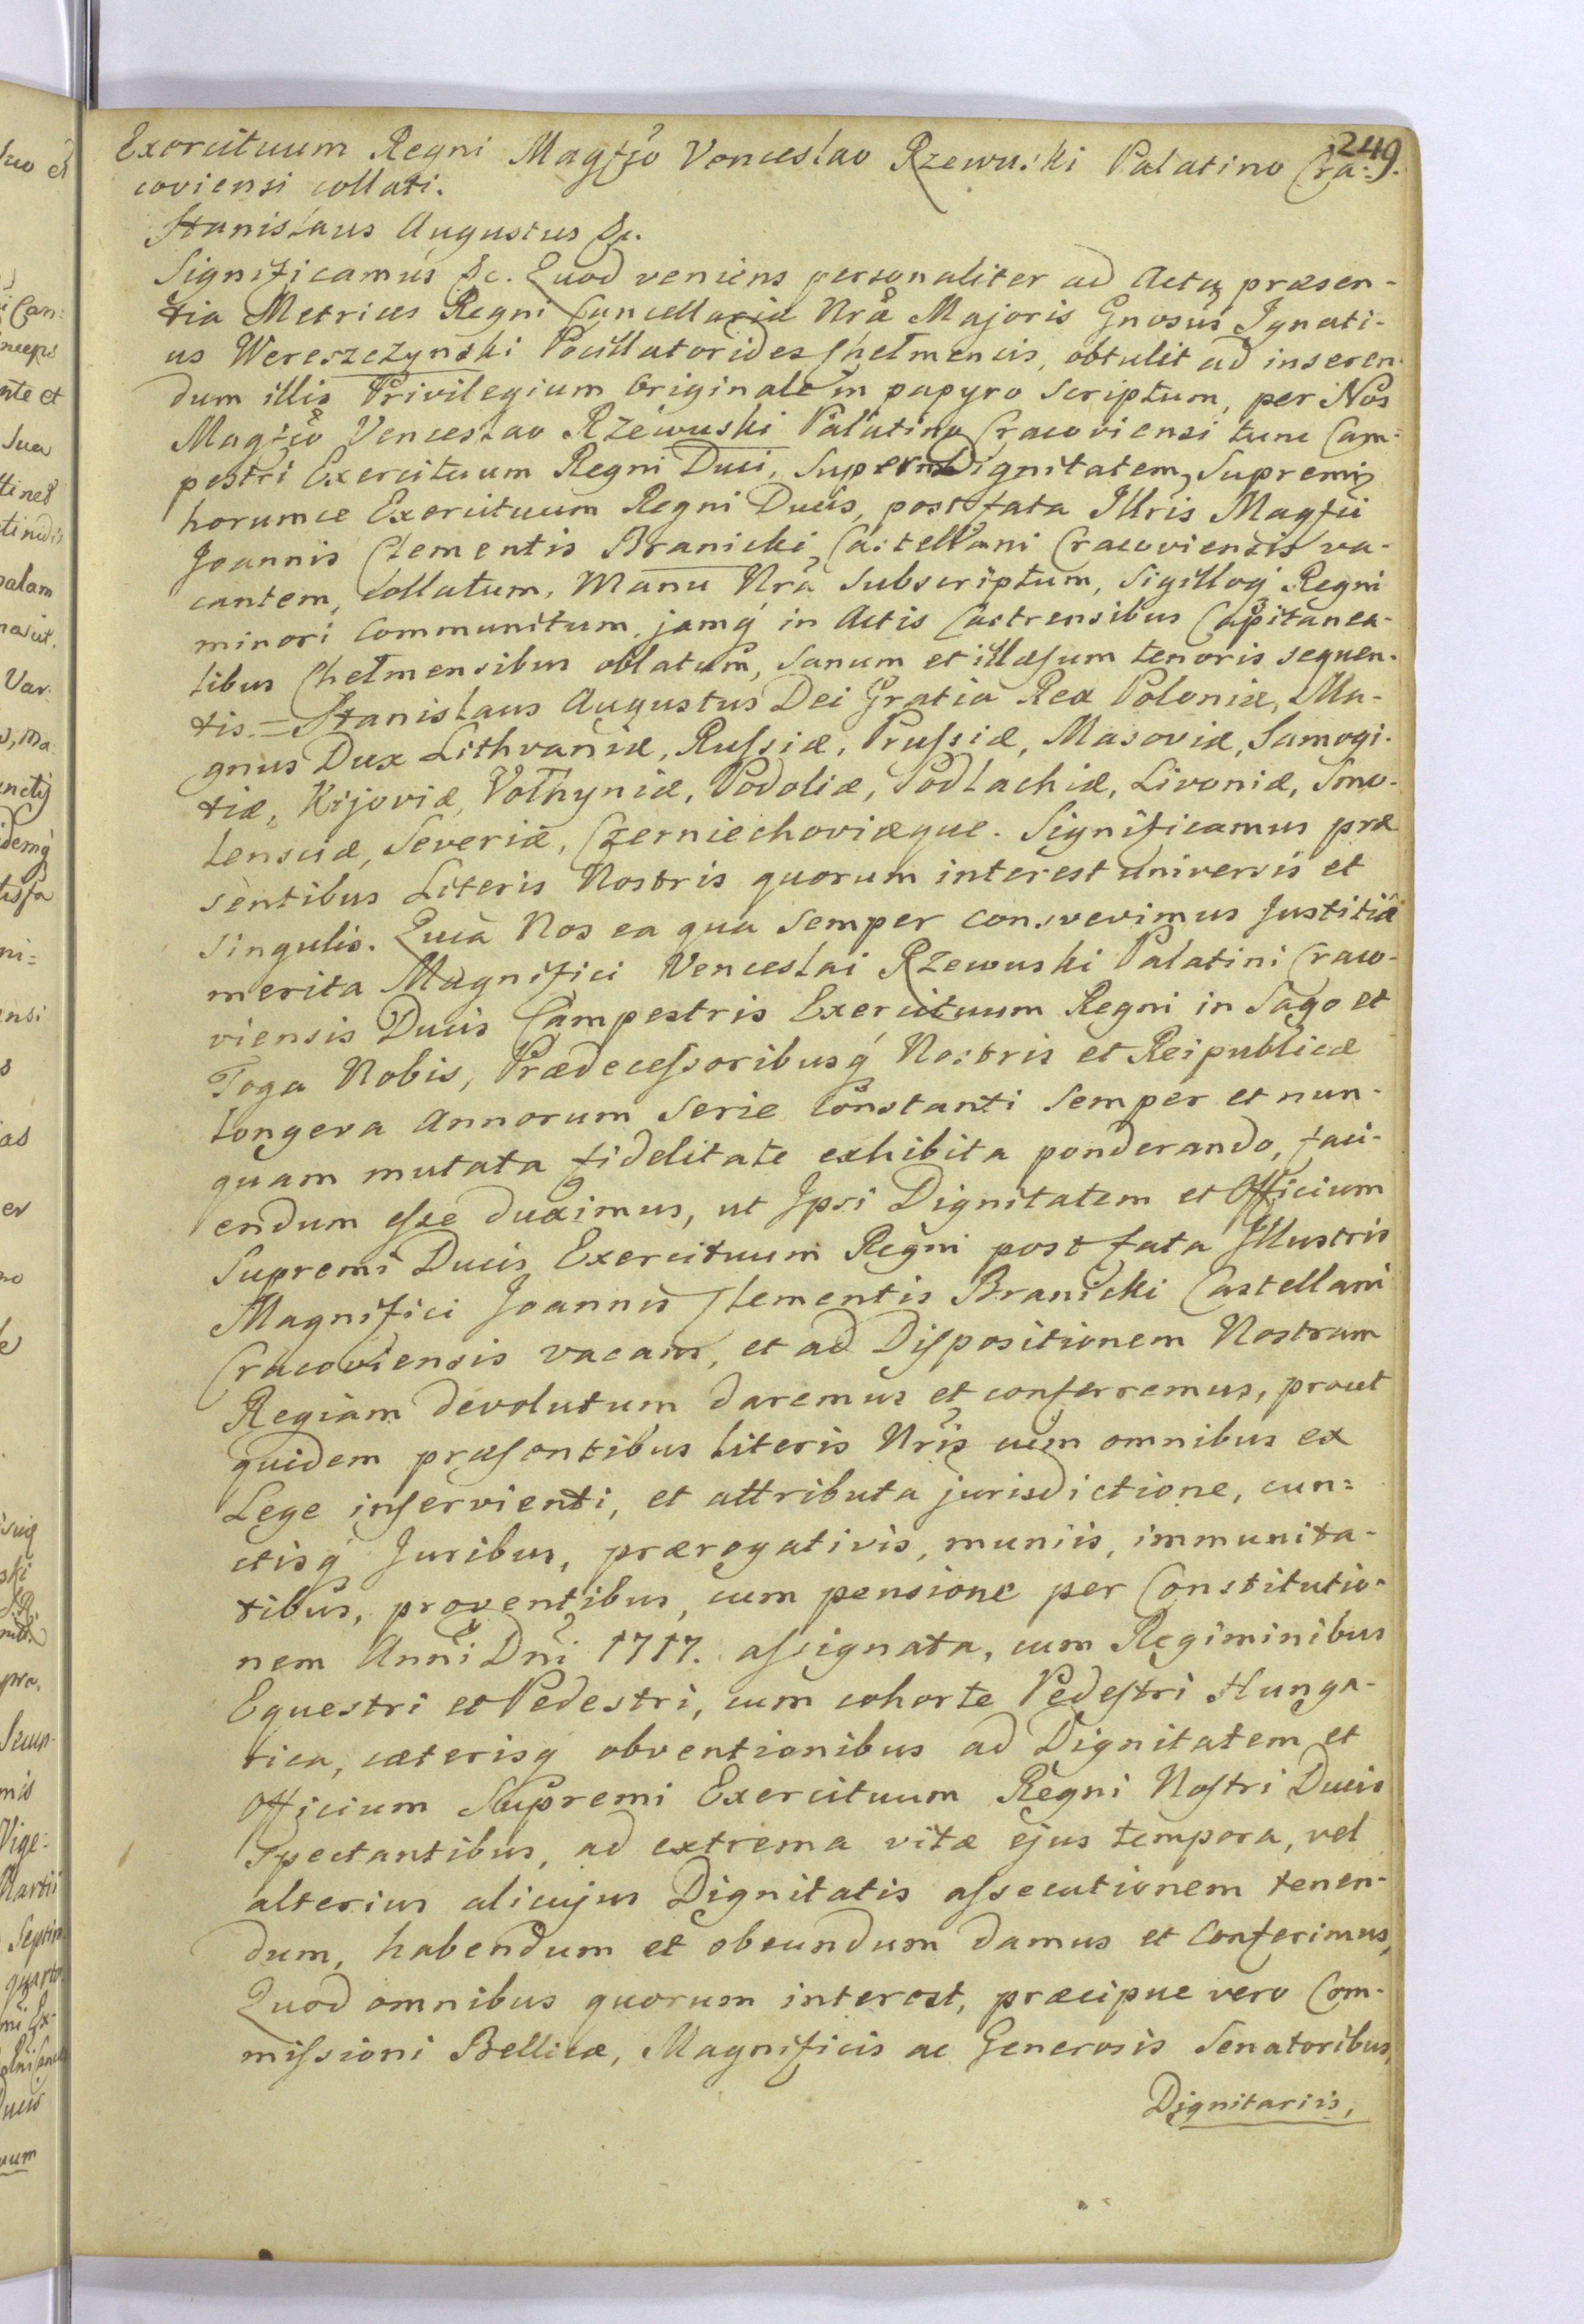 249.
Exercituum Regni Magfco Venceslao Rzewuski Palatino Cra:
coviensi collati.
Stanislaus Augustus &c.
Significamus &c. Quod veniens personaliter ad Acta præsen-
tia Metrices Regni Cancellariæ Nræ Majoris Gnosus Ignati-
us Wereszczynski Pocillatorides Chelmensis, obtulit ad inseren-
dum illis Privilegium Originale in papyro scriptum, per Nos
Magfco Venceslao Rzewuski Palatino Cracoviensi tunc Cam-
pestri Exercituum Regni Duci, super Dignitatem Supremi
horumce Exercituum Regni Ducis, post fata Illris Magfci
Joannis Clementis Branicki, Castellani Cracoviensis va-
cantem, collatum, Manu Nrâ subscriptum, Sigilloq́ Regni
minori communitum, jamq́ in Actis Castrensibus Capitanea-
libus Chelmensibus oblatum, sanum et illæsum tenoris sequen-
tis. = Stanislaus Augustus Dei Gratia Rex Poloniæ, Ma-
gnus Dux Lithvaniæ, Russiæ, Prussiæ, Masoviæ, Samogi-
tiæ, Kijoviæ, Volhyniæ, Podoliæ, Podlachiæ, Livoniæ, Smo-
lensciæ, Severiæ, Czerniechoviæque. Significamus præ
sentibus Literis Nostris quorum interest universis et
singulis. Quia Nos ea qua semper consvevimus Justitiâ
merita Magnifici Venceslai Rzewuski Palatini Craco-
viensis Ducis Campestris Exercituum Regni in Sago et
Toga Nobis, Prædecessoribusq́ Nostris et Reipublicæ
longeva Annorum serie constanti semper et nun-
quam mutata fidelitate exhibita ponderando, faci-
endum esse duximus, ut Ipsi Dignitatem et Officium
Supremi Ducis Exercituum Regni post fata Illustris
Magnifici Joannis Clementis Branicki Castellani
Cracoviensis vacans, et ad Dispositionem Nostram
Regiam devolutum daremus et conferremus, prout
quidem præsentibus literis Nris cum omnibus ex
Lege inservienti, et attributa jurisdictione, cun=
ctisq́ Juribus, prærogativis, muniis, immunita-
tibus, proventibus, cum pensione per Constitutio-
nem Anni Dni 1717. assignata, cum Regiminibus
Equestri et Pedestri, cum cohorte Pedestri Hunga-
rica, cæterisq obventionibus ad Dignitatem et
Officium Supremi Exercituum Regni Nostri Ducis
spectantibus, ad extrema vitæ ejus tempora, vel
alterius alicujus Dignitatis assecutionem tenen-
dum, habendum et obeundum damus et Conferimus,
Quod omnibus quorum interest, præcipue vero Com-
missioni Bellicæ, Magnificis ac Generosis Senatoribus,
Dignitariis,